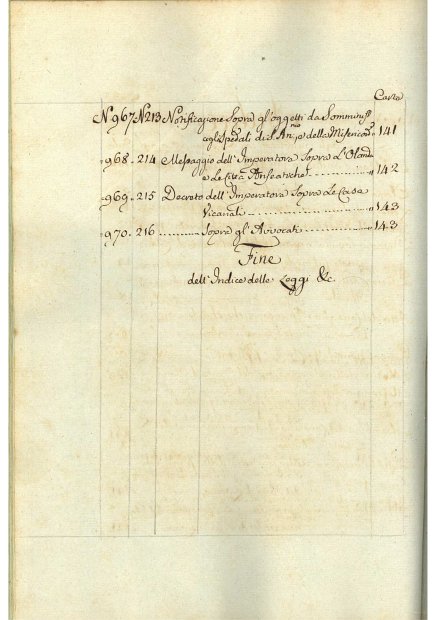 Carta
N 967 N 213 Notificazione Sopra gl'oggetti da Somminis.
agli Spedali di S. An.no, e della Misericor. " 141
" 968. 214 Messaggio dell'Imperatore Sopra L'Oland
e Le Città Anseatiche " 142
" 969. 215 Decreto dell'Imperatore Sopra Le Case
Vicanali " 143
" 970. 216 Sopra gl'Avvocati " 143
Fine
dell'Indice delle Leggi &c.